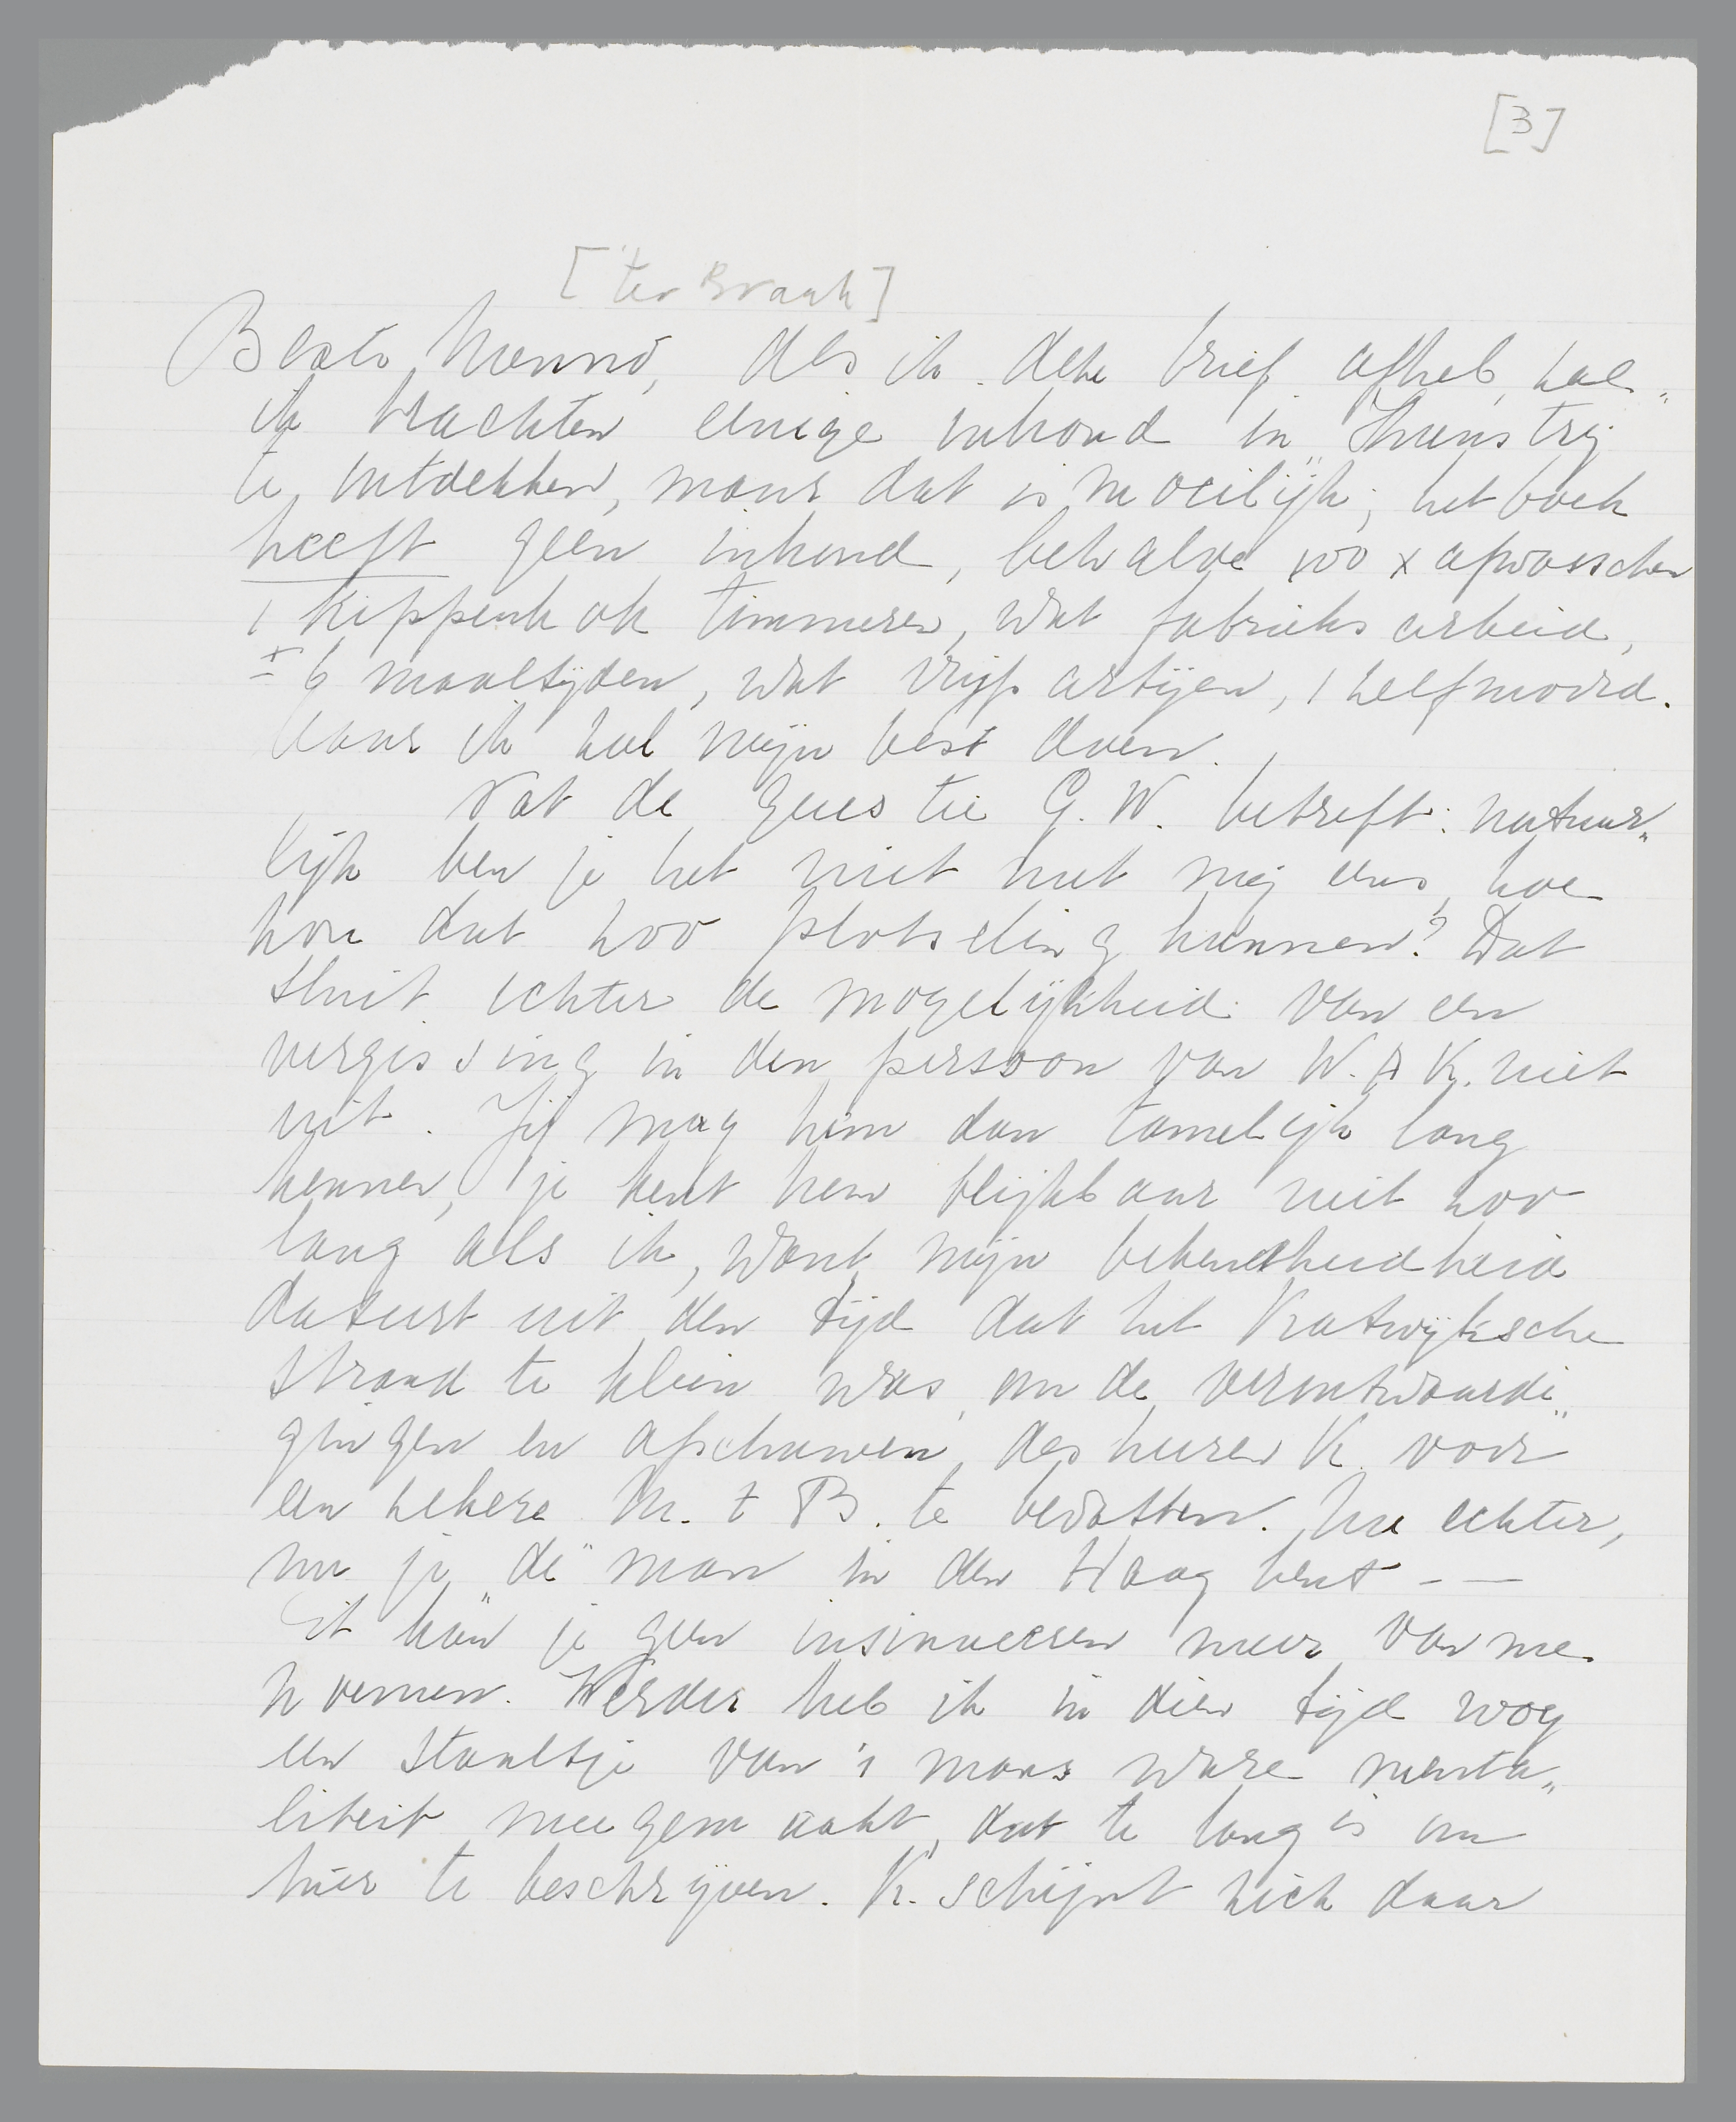 [3]
[ter Braak]
Beste Menno, Als ik deze brief afheb, zal
ik trachten eenige inhoud in
te ontdekken, maar dat is moeilijk; het boek
heeft geen inhoud, behalve 100 x afwasschen
1 kippenhok timmeren, wat fabrieks arbeid,
± 6 maaltijden, wat vrijpartijen, 1 zelfmoord.
Maar ik zal mijn best doen.
Wat de questie G.W. betreft: natuur„
lijk ben je het niet met mij eens, hoe
zou dat zoo plotseling kunnen? Dat
sluit echter de mogelijkheid van een
vergissing in den persoon van W. A K. niet
uit. Jij mag hem dan tamelijk lang
kennen, je kent hem blijkbaar niet zoo
lang als ik, want mijn bekendheidheid
dateert uit den tijd dat het Katwijksche
strand te klein was, om de verontwaardi„
gingen en afschuwen des heeren K. voor
een zekere M. t B. te bevatten. Nu echter,
nu je „de" man in den Haag bent - —
Dit zou je geen insinueeren meer van me
noemen. Verder heb ik in dien tijd nog
een staaltje van 's mans ware menta„
liteit meegemaakt, dat te lang is om
hier te beschrijven. K. schijnt zich daar